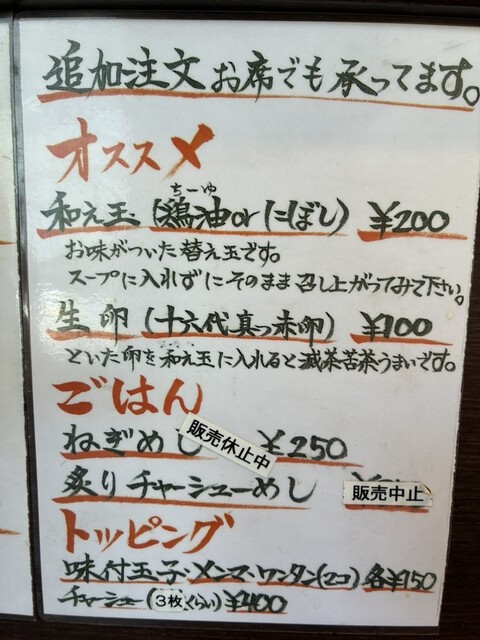 追加注文 お席でも承ってます。
オススメ
ちーゆ
和え玉 (鶏油orにぼし) ¥200
お味がついた替え玉です。
スープに入れずにそのまま召し上がってみて下さい。
生卵 (十六代真っ赤卵) ¥100
といた卵を和え玉に入れると滅茶苦茶うまいです。
ごはん
ねぎめし ¥250
販売休止中
炙りチャーシューめし
販売中止
トッピング
味付玉子・メンマ・ワンタン(2コ) 各¥150
チャーシュー(3枚くらい) ¥400